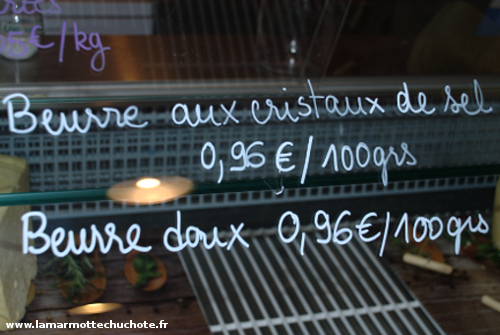 5€/kg
Beurre aux cristaux de sel
0,96 €/100grs
Beurre doux 0,96€/100grs
www.lamarmottechuchote.fr